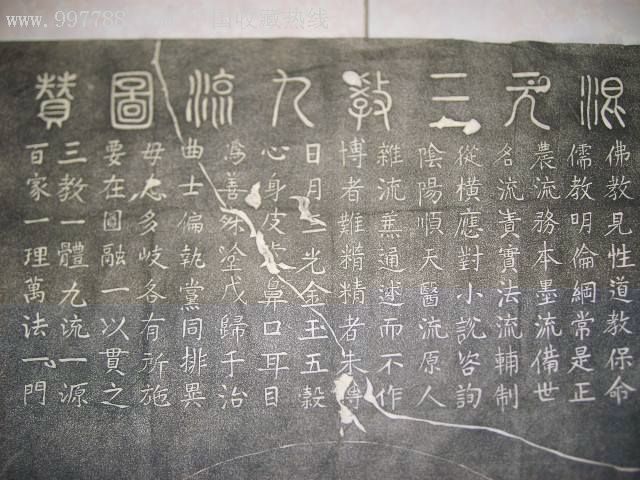 www.997788.com中国收藏热线
混元三教九流圖贊
佛教見性道教保命
儒教明倫綱常是正
農流務本墨流備世
名流責實法流輔制
從橫應對小說咨詢
陰陽順天醫流原人
雜流兼通述而不作
博者難精精者未博
日月三光金玉五穀
心身皮膚鼻口耳目
為善殊塗咸歸于治
曲士偏執黨同排異
毋患多岐各有所施
要在圓融一以貫之
三教一體九流一源
百家一理萬法一門